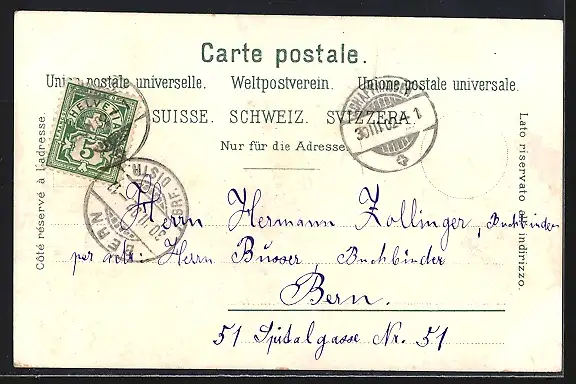 Carte postale.
Union postale universelle. Weltpostverein. Unione postale universale.
SUISSE. SCHWEIZ. SVIZZERA.
Nur für die Adresse.
Côté réservé à l'adresse.
Lato riservato all'indirizzo.
HELVETIA
5
30 III 02
BERN
Herrn Hermann Zollinger, Buchbinder
per adr: Herrn Büsser, Buchbinder
Bern.
51 Spitalgasse Nr. 51